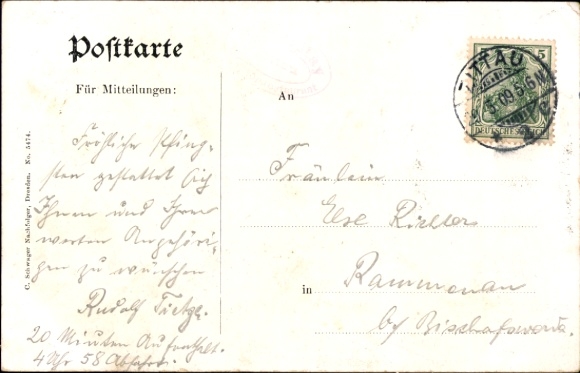 Postkarte
Für Mitteilungen:
An
Fröhliche Pfing-
sten gestattet sich
Ihnen und Ihren
werten Angehöri-
gen zu wünschen
Rudolf Tietze.
20 Minuten Aufenthalt.
4 Uhr 58 Abfahrt.
Fräulein
Else Richter
in
Rammenau
b/ Bischofswerda.
5
ZITTAU
5 09 5-6N
DEUTSCHES REICH
C. Schwager Nachfolger, Dresden. No. 5474.